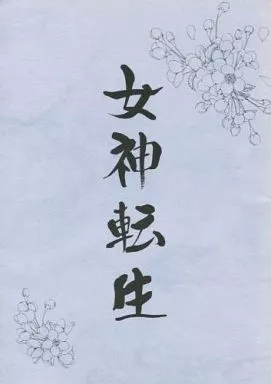 女神転生